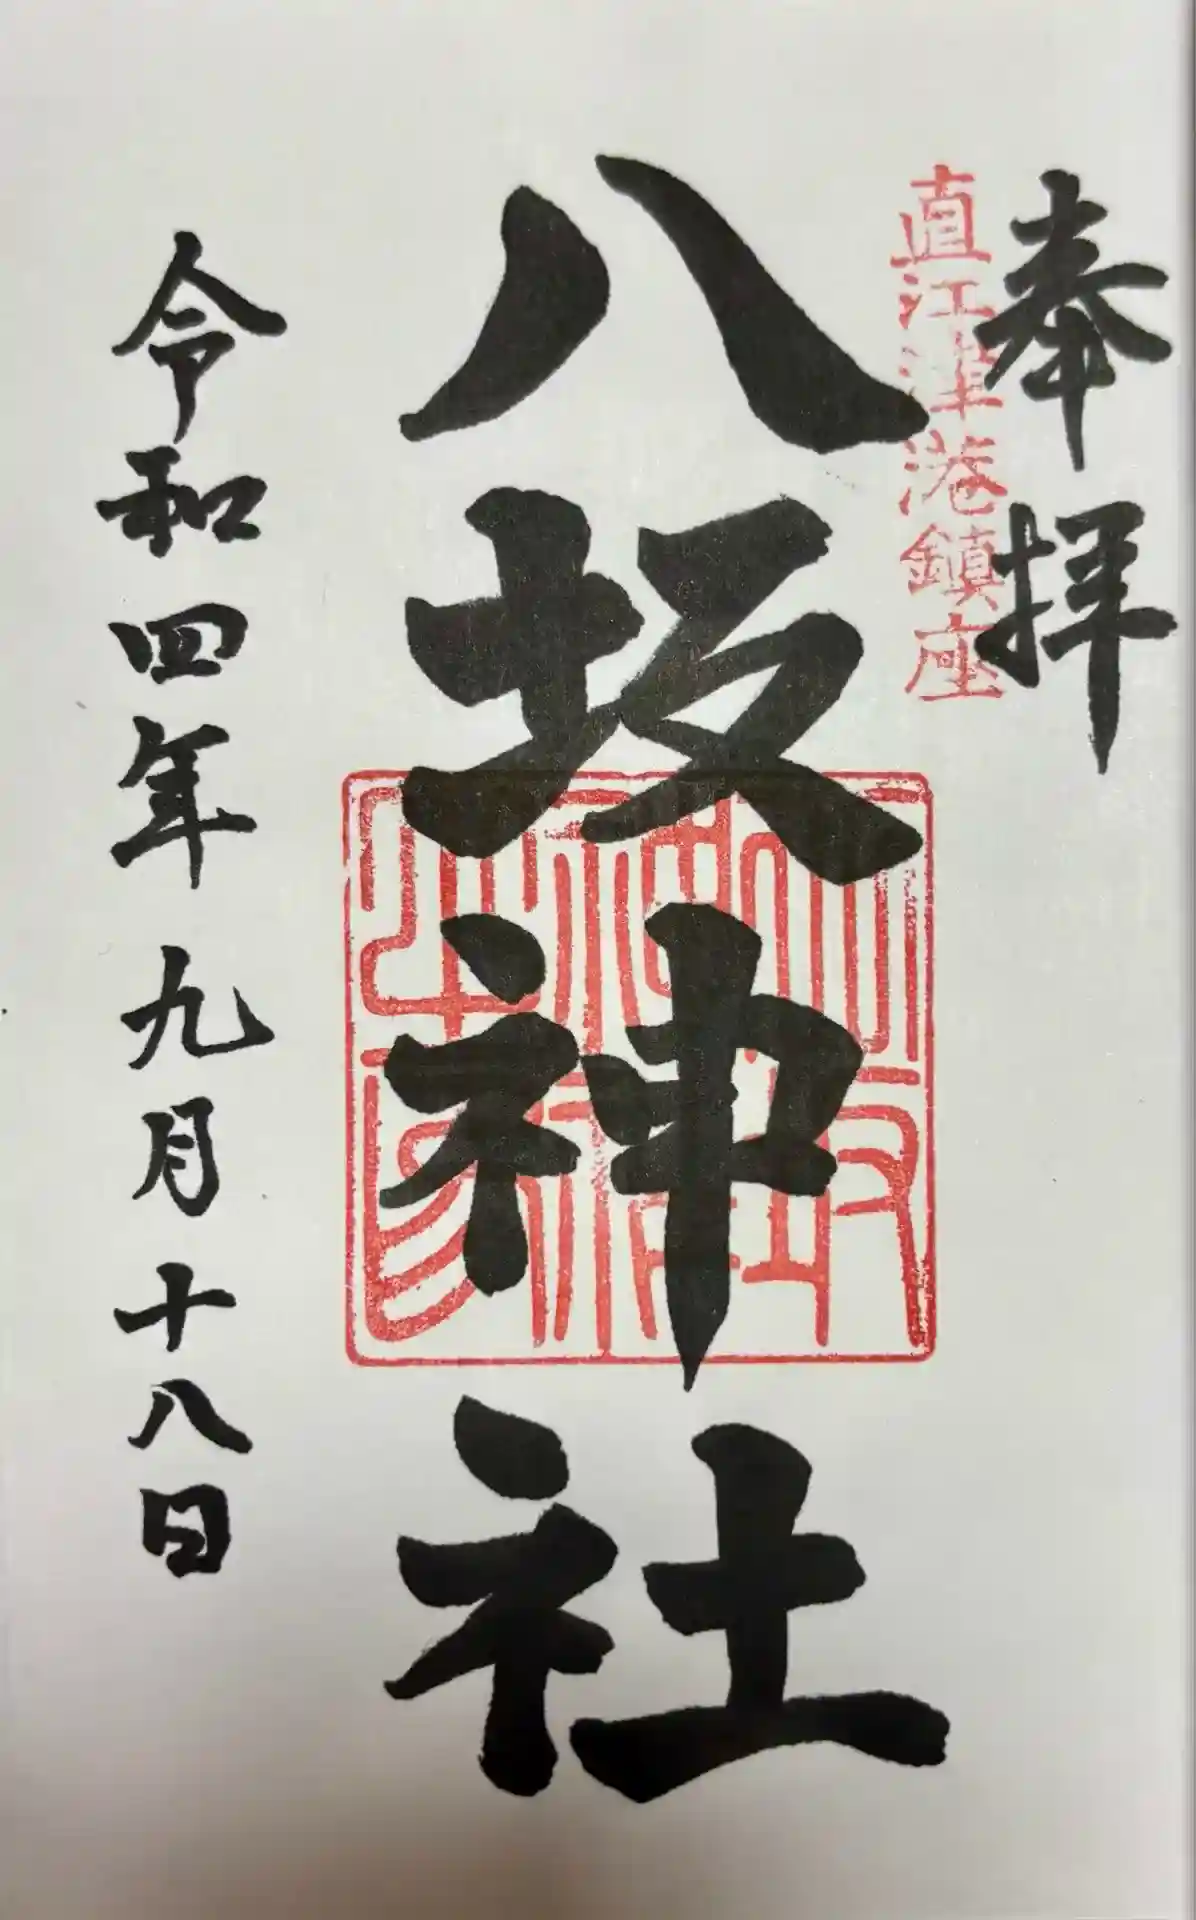 奉拝
直江津港鎮座
八坂神社
令和四年九月十八日